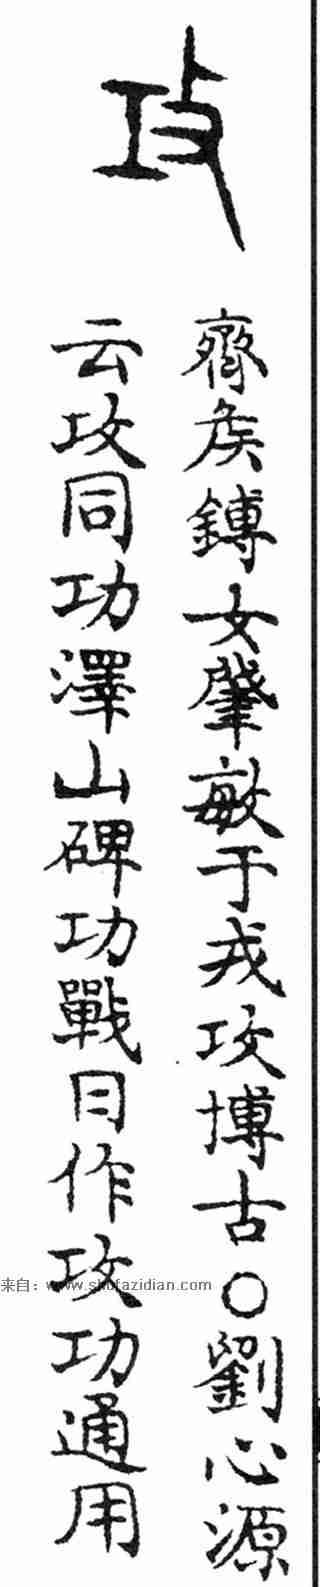 攻
齊矦鎛女肇敏于戎攻博古○劉心源
云攻同功澤山碑功戰日作攻功通用
来自：www.shufazidian.com